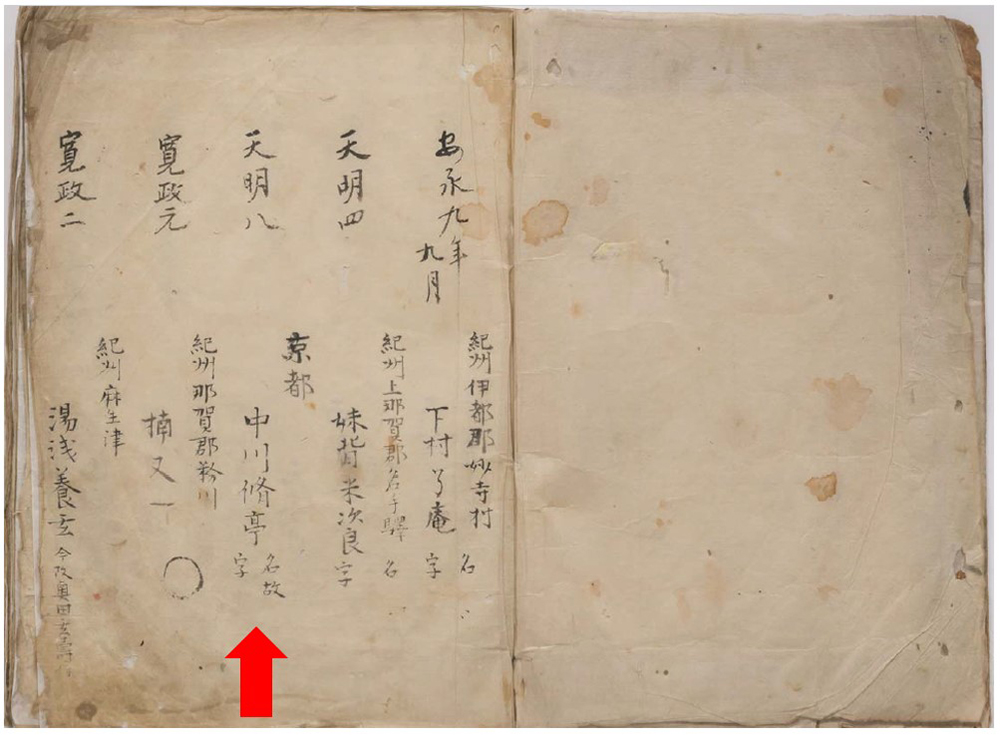 安永九年
九月
紀州伊都郡妙寺村
下村 庵
名
字
天明四
紀州上那賀郡名手驛
妹背米次良
名
字
天明八
京都
中川脩亭
名故
字
寛政元
紀州那賀郡 川
楠又一
寛政二
紀州麻生津
湯浅養玄
今改奥田